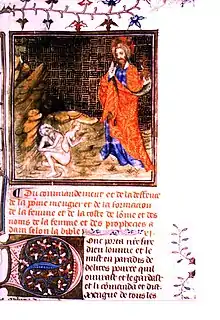 Du commandement et de la deffence
de la pome mengier et de la formacion
de la femme et de la coste de lome et des
noms de la femme et des prophecies
adam selon la bible
Donc porta nre sire
dieu lomme et le
mist en paradis de
delices pource quil
ouurast et le gardast
et li comenda et dist
mengue de tous les